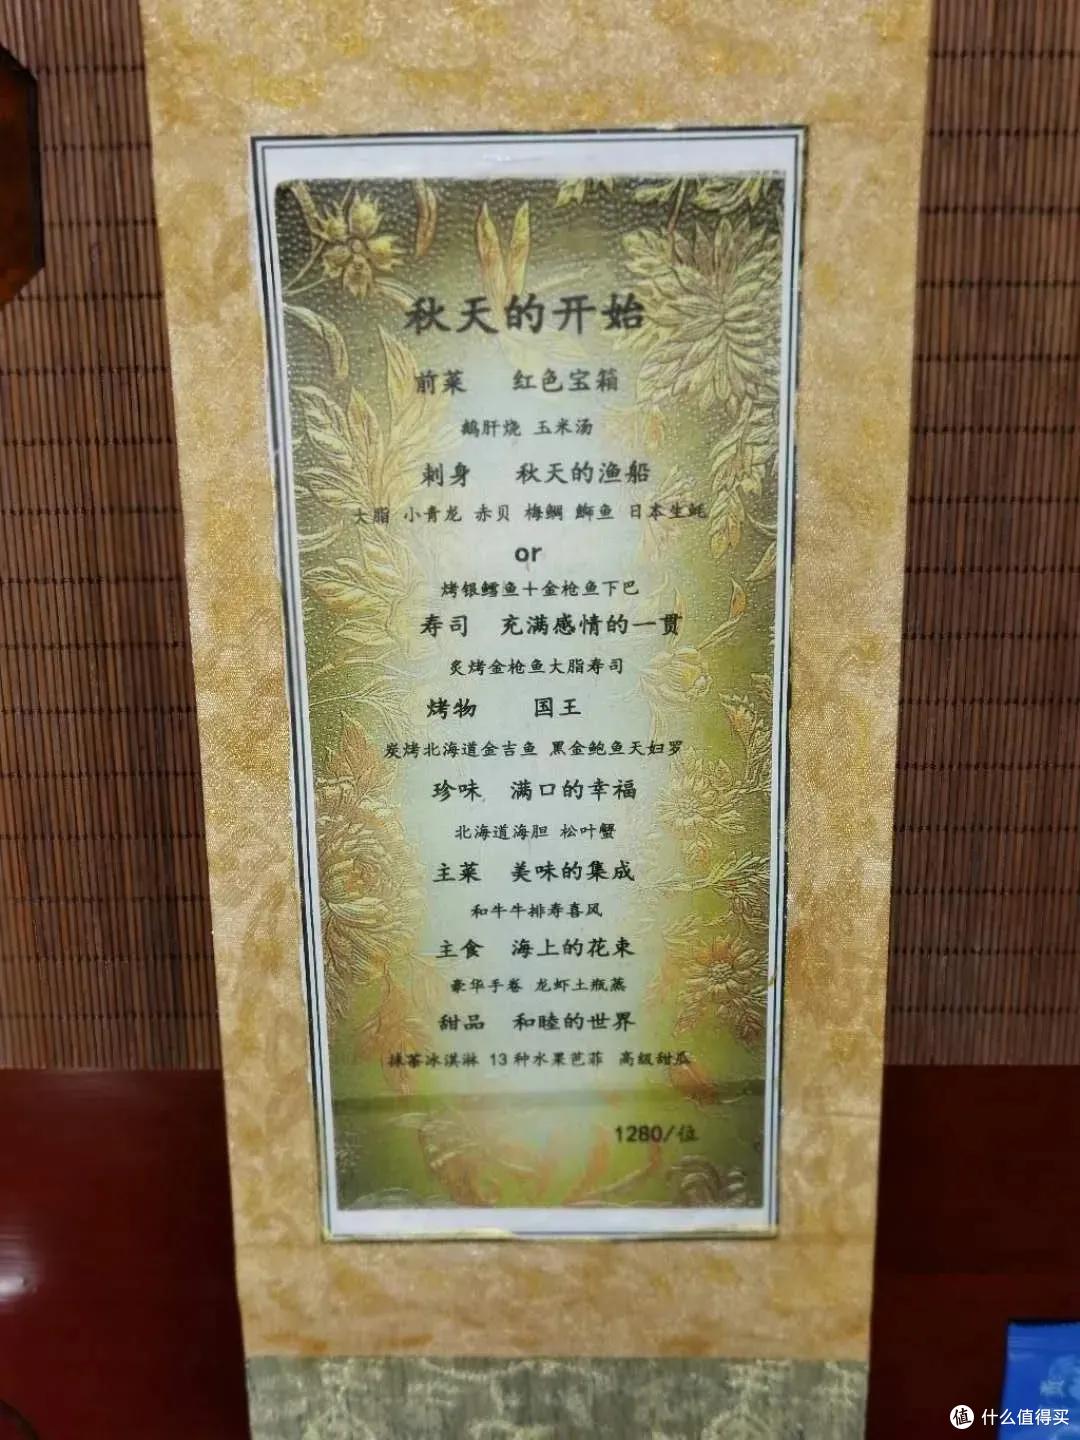 秋天的开始
前菜 红色宝箱
鹅肝烧 玉米汤
刺身 秋天的渔船
大脂 小青龙 赤贝 梅鲷 鰤鱼 日本生蚝
or
烤银鳕鱼+金枪鱼下巴
寿司 充满感情的一贯
炙烤金枪鱼大脂寿司
烤物 国王
炭烤北海道金吉鱼 黑金鲍鱼天妇罗
珍味 满口的幸福
北海道海胆 松叶蟹
主菜 美味的集成
和牛牛排寿喜风
主食 海上的花束
豪华手卷 龙虾土瓶蒸
甜品 和睦的世界
抹茶冰淇淋 13种水果芭菲 高级甜瓜
1280/位
值 什么值得买